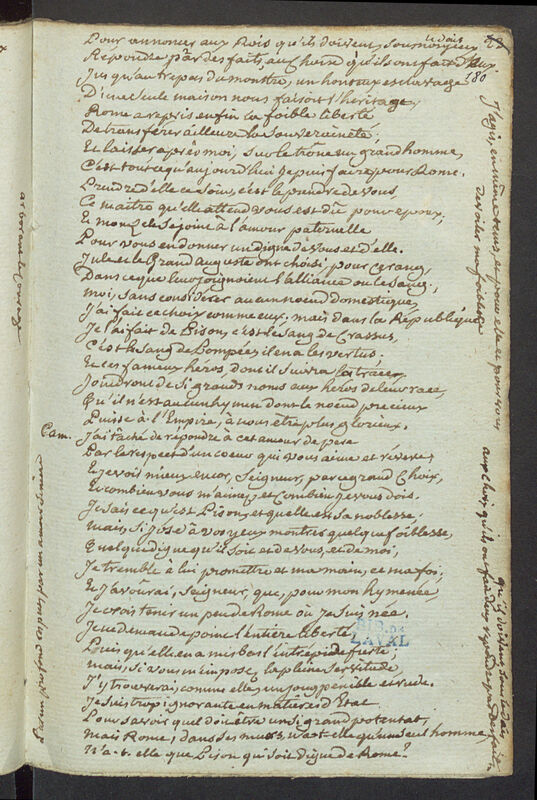 le dais
Pour annoncer aux Rois qu'ils doivent, sous nos yeux
180
Repondre par des faits, aux choix qu'ils ont fait d'eux.
Jusqu'au trepas du monstre, un honteux esclavage
D'une seule maison nous faisoit l'héritage,
Rome a repris enfin sa foible liberté
De transférer ailleurs la souveraineté.
Et laisser après moi, sur le trône un grand homme,
C'est tout ce qu'aujourd'hui je puis faire pour Rome.
Prendre d'elle ce soin, c'est le prendre de vous,
Ce maître qu'elle attend vous est dû pour époux,
Et mon zele se joint à l'amour paternelle
Pour vous en donner un digne de vous et d'elle.
Jule et le Grand Auguste ont choisi pour ce rang,
Dans ceux que leur joignoient l'alliance ou le sang;
Moi, sans considérer aucun noeud domestique,
J'ai fait ce choix comme eux, mais dans la République
Je l'ai fait de Pison, c'est le sang de Crassus,
C'est le sang de Pompée, il en a les vertus.
Et ces fameux héros, dont il suivra la trace,
Joindront de si grands noms aux héros de leur race,
Qu'il n'est aucun hymen dont le noeud précieux
Puisse à l'Empire, à nous être plus glorieux.
Cam. J'ai tâché de répondre à cet amour de pere
Par le respect d'un coeur qui vous aime et révère;
Et je vois mieux encor, Seigneur, par ce grand Choix,
Et combien vous m'aimez, et Combien je vous dois.
Je sais ce qu'est Pison, et quelle est sa noblesse;
Mais, si j'ose à vos yeux montrer quelque foiblesse,
Quelque digne qu'il soit et de vous, et de moi,
Je tremble à lui promettre et ma main, et ma foi;
Et j'avoûrai, Seigneur, que, pour mon hymenée,
Je crois tenir un peu de Rome où je suis née.
Je ne demande point l'entière liberté,
Puis qu'elle en a mis bas l'intrépide fierté;
Mais, si vous m'imposez la pleine servitude
J'y trouverai, comme elle, un joug penible et rude.
Je suis trop ignorante en matière d'Etat
Pour savoir quel doit être un si grand potentat,
Mais Rome, dans ses murs, n'a-t-elle qu'un seul homme,
N'a-t-elle que Pison qui soit digne de Rome?
J'agis, en même tems, et pour elle et pour vous
aux Choix qu'ils ont fait d'eux
qu'ils doivent sous le dais
BIB. DE
LAVAL